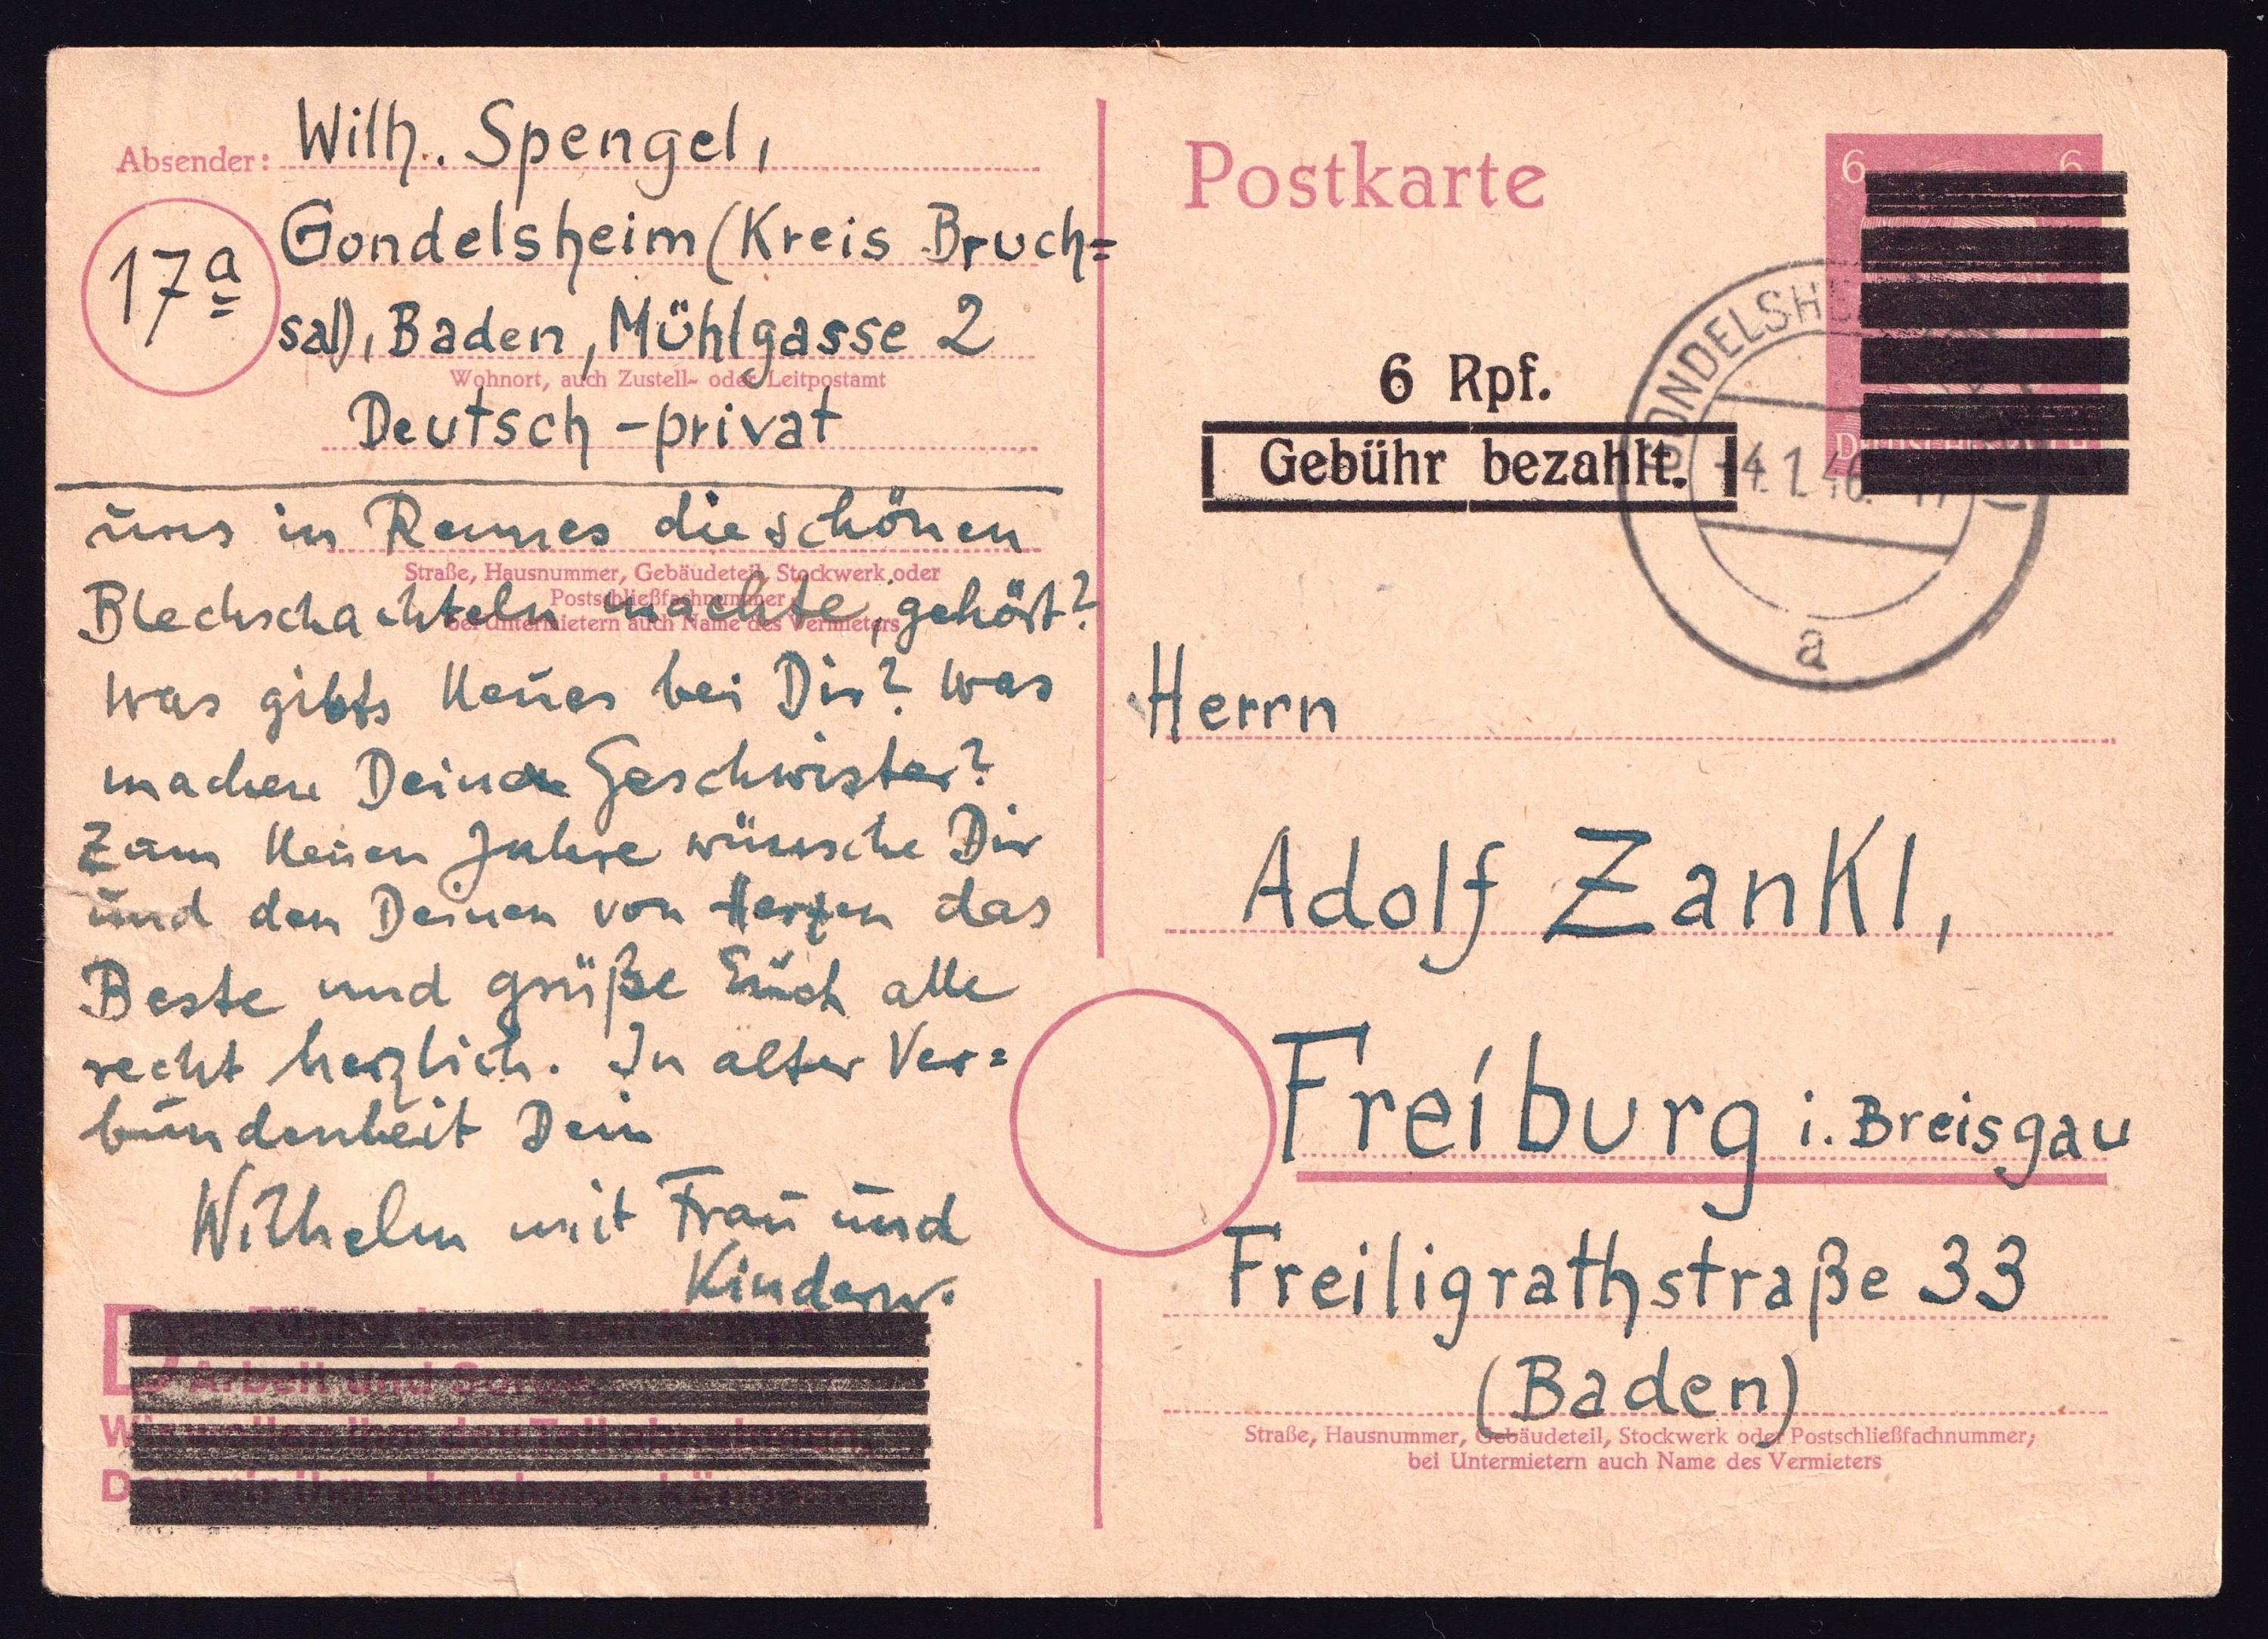 Absender: Wilh. Spengel,
17a
Gondelsheim (Kreis Bruch=
sal), Baden, Mühlgasse 2
Wohnort, auch Zustell- oder Leitpostamt
Deutsch-privat
uns in Rennes die schönen
Straße, Hausnummer, Gebäudeteil, Stockwerk oder
Postschließfachnummer
bei Untermietern auch Name des Vermieters
Blechschachteln machte, gehört?
Was gibts Neues bei Dir? Was
machen Deine Geschwister?
Zum Neuen Jahre wünsche Dir
und den Deinen von Herzen das
Beste und grüße Euch alle
recht herzlich. In alter Ver=
bundenheit Dein
Wilhelm mit Frau und
Kindern.
Arbeit und Sorge.
Wir wollen ihm den Teil abnehmen,
Den wir ihm abnehmen können.
Postkarte
6 6
6 Rpf.
Gebühr bezahlt.
GONDELSHEIM
-4.1.46.
a
Herrn
Adolf Zankl,
Freiburg i. Breisgau
Freiligrathstraße 33
(Baden)
Straße, Hausnummer, Gebäudeteil, Stockwerk oder Postschließfachnummer;
bei Untermietern auch Name des Vermieters